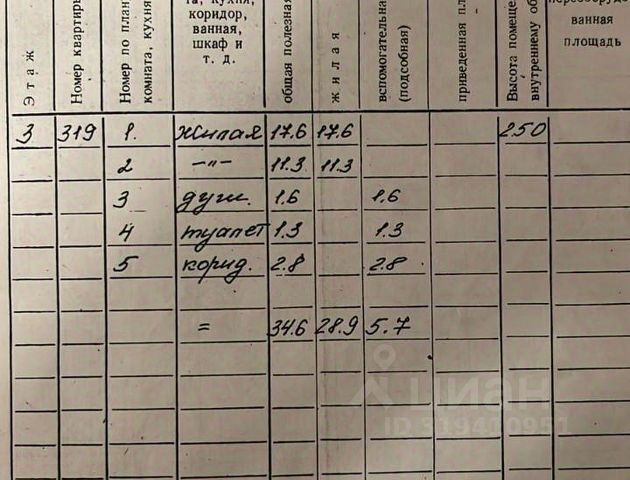 Этаж
Номер квартиры
Номер по плану
комната, кухня
та, кухня,
коридор,
ванная,
шкаф и
т. д.
общая полезная
жилая
вспомогательная
(подсобная)
приведенная
Высота
внутреннему
ванная
площадь
3 319 1. жилая 17.6 17.6 2.50
2 -"- 11.3 11.3
3 душ. 1.6 1.6
4 туалет 1.3 1.3
5 корид. 2.8 2.8
= 34.6 28.9 5.7
циан